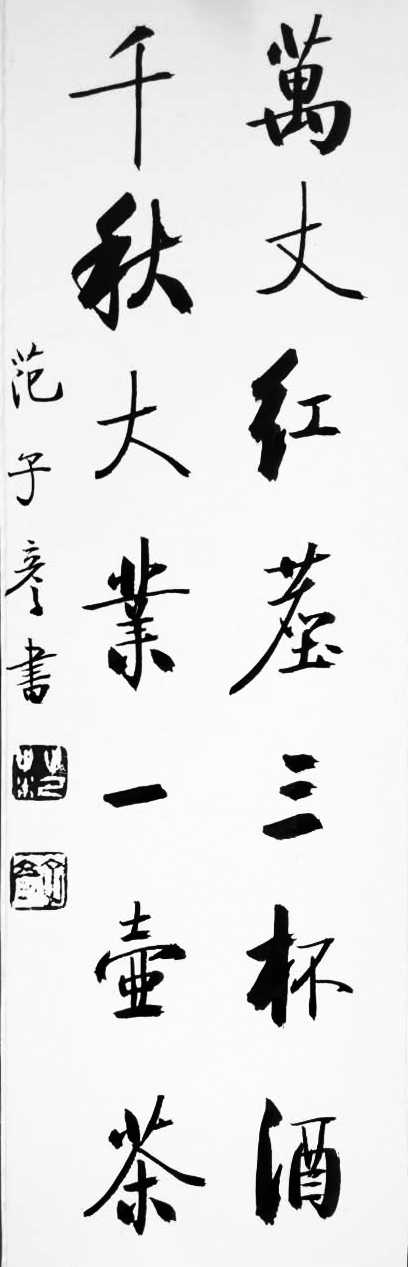 萬丈红塵三杯酒
千秋大業一壺茶
范子彦書